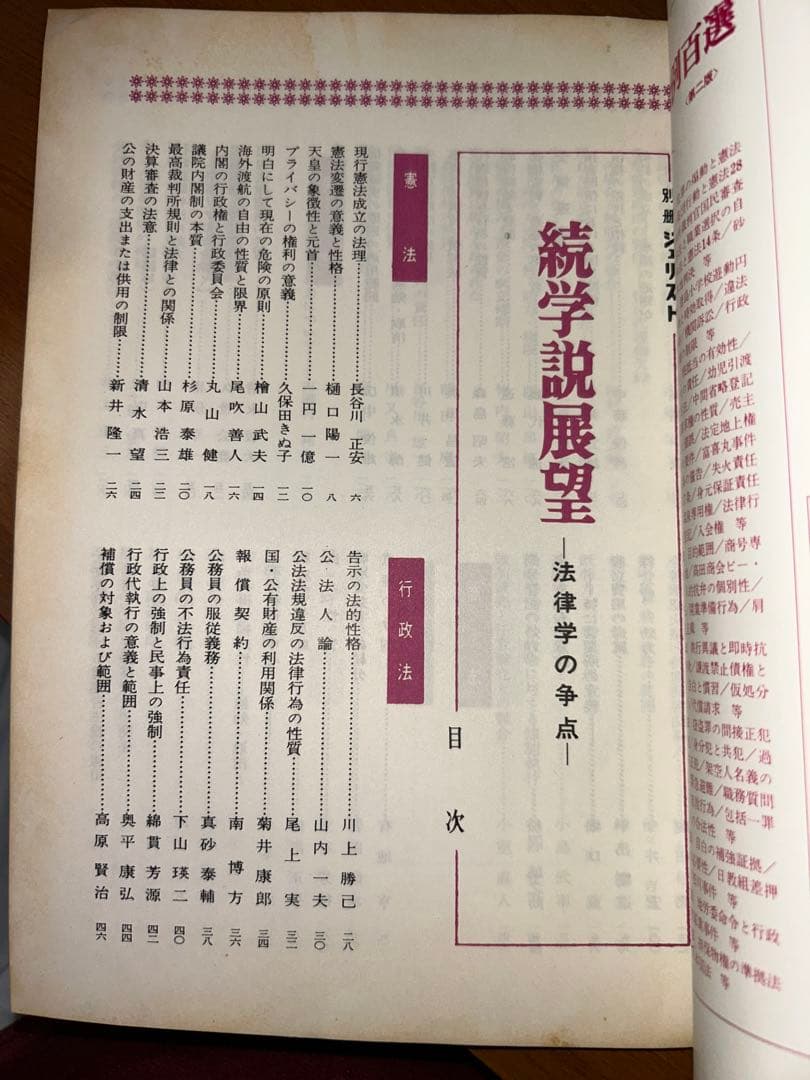 別冊ジュリスト
続学説展望
―法律学の争点―
目次
憲法
現行憲法成立の法理……長谷川正安 六
憲法変遷の意義と性格……樋口陽一 八
天皇の象徴性と元首……一円一億 一〇
プライバシーの権利の意義……久保田きぬ子 一二
明白にして現在の危険の原則……檜山武夫 一四
海外渡航の自由の性質と限界……尾吹善人 一六
内閣の行政権と行政委員会……丸山健 一八
議院内閣制の本質……杉原泰雄 二〇
最高裁判所規則と法律との関係……山本浩三 二二
決算審査の法意……清水望 二四
公の財産の支出または供用の制限……新井隆一 二六
行政法
告示の法的性格……川上勝己 二八
公法人論……山内一夫 三〇
公法法規違反の法律行為の性質……尾上実 三二
国・公有財産の利用関係……菊井康郎 三四
報償契約……南博方 三六
公務員の服従義務……真砂泰輔 三八
公務員の不法行為責任……下山瑛二 四〇
行政上の強制と民事上の強制……綿貫芳源 四二
行政代執行の意義と範囲……奥平康弘 四四
補償の対象および範囲……高原賢治 四六
百選
〈第二版〉
の煽動と憲法
行動と憲法28
裁判官国民審査
職業選択の自
憲法14条／砂
等
小学校遊動円
時効取得／違法
機関訴訟／行政
制限 等
抵当の有効性／
責任／幼児引渡
中間省略登記
権の性質／売主
法定地上権
要件／富喜丸事件
警告／失火責任
条／身元保証責任
専用権／法律行
記／入会権 等
的範囲／商号専
高田商会ビー・
的抗弁の個別性／
開業準備行為／肩
等
執行異議と即時抗
譲渡禁止債権と
自白と慣習／仮処分
代償請求 等
窃盗罪の間接正犯
身分犯と共犯／過
架空人名義の
緊急避難／職務質問
行為／包括一罪
合法性 等
自白の補強証拠／
要性／日教組差押
事件 等
地労委命令と行政
事件 等
担保物権の準拠法
法 等